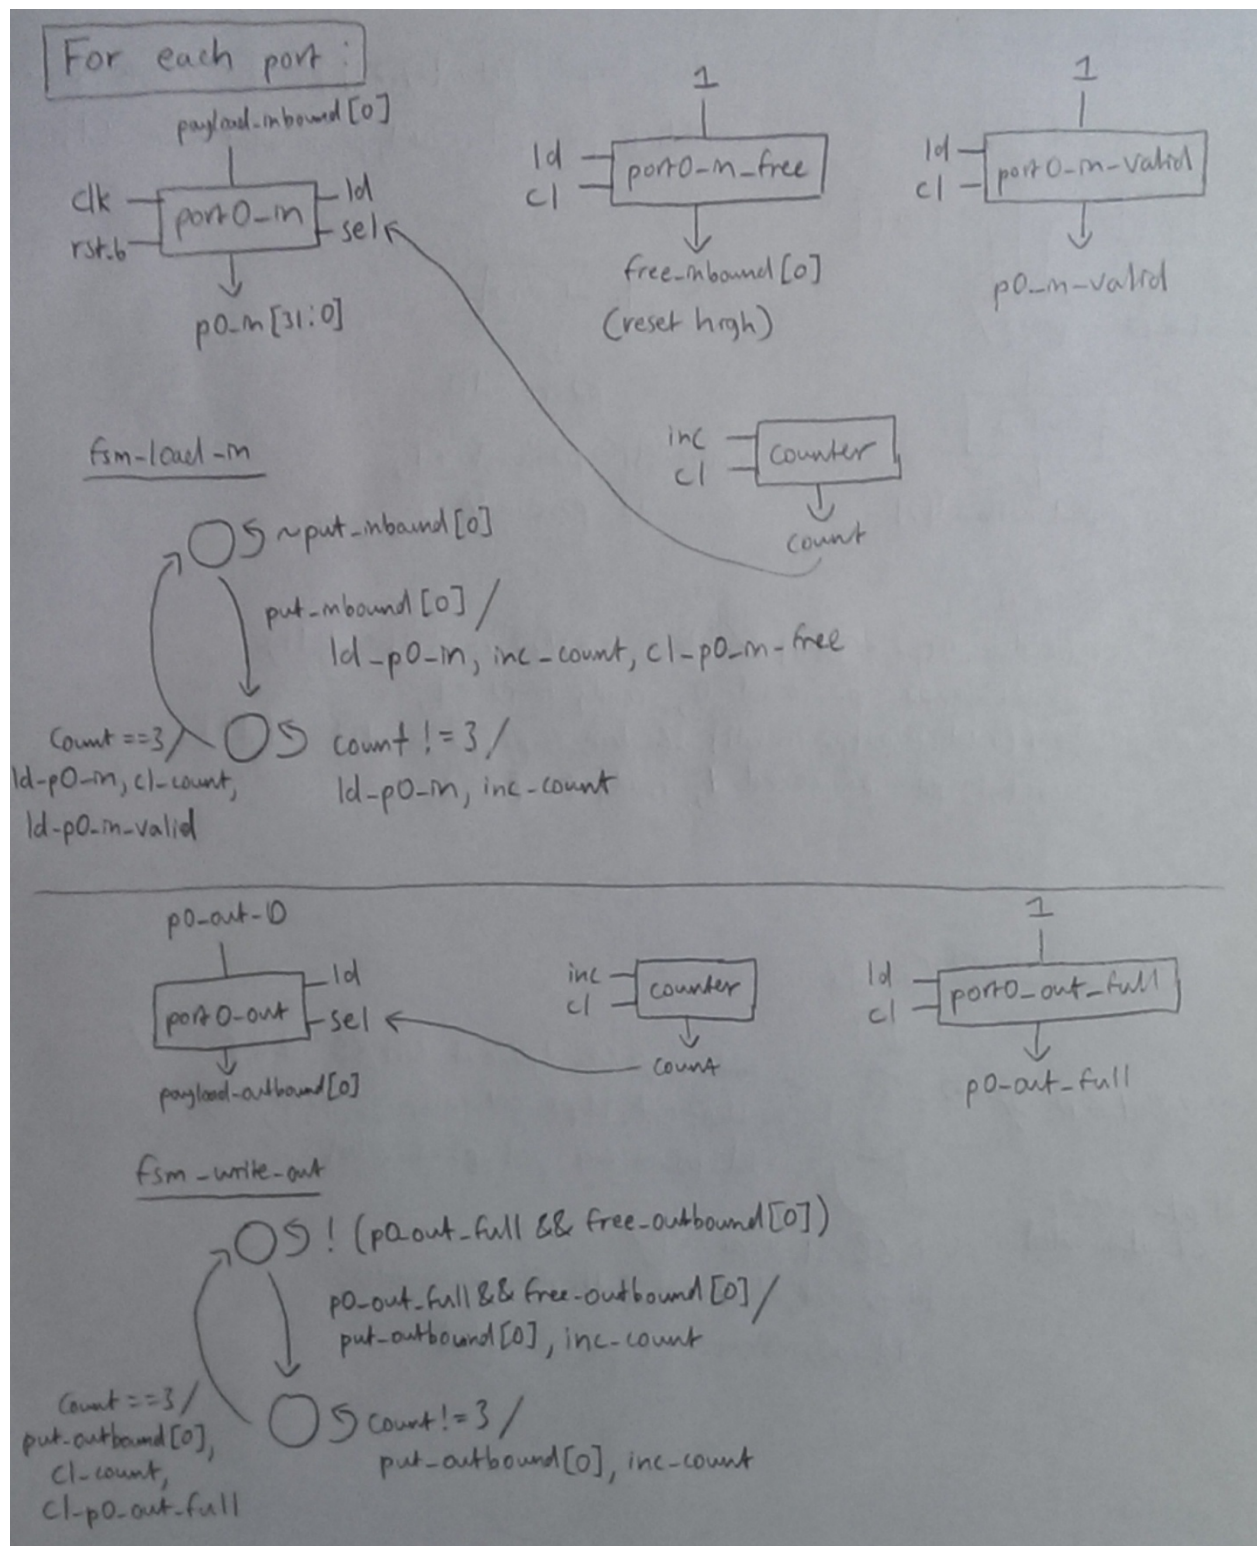 For each port :
payload_inbound[0]
clk
rst_b
port0_in
ld
sel
p0_in[31:0]
1
ld
cl
port0_in_free
free_inbound[0]
(reset high)
1
ld
cl
port0_in_valid
p0_in_valid
inc
cl
counter
count
fsm_load_in
~put_inbound[0]
put_inbound[0] /
ld_p0_in, inc_count, cl_p0_in_free
count != 3 /
ld_p0_in, inc_count
Count == 3 /
ld_p0_in, cl_count,
ld_p0_in_valid
p0_out_D
port0_out
ld
sel
payload_outbound[0]
inc
cl
counter
count
1
ld
cl
port0_out_full
p0_out_full
fsm_write_out
! (p0_out_full && free_outbound[0])
p0_out_full && free_outbound[0] /
put_outbound[0], inc_count
Count != 3 /
put_outbound[0], inc_count
Count == 3 /
put_outbound[0],
cl_count,
cl_p0_out_full